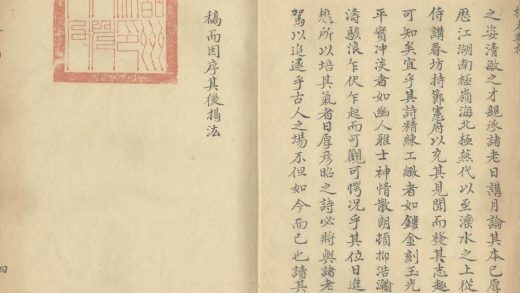 之姿清敏之才親承諸老日講月論其本已厚
歷江湖南極嶺海北極燕代以至灤水之上從
侍講春坊持節憲府以充其見聞而發其志趣
可知矣宜乎其詩精練工緻者如鏤金刻玉光
平實沖淡者如幽人雅士神情散朗頓抑浩瀚
濤駭浪乍伏乍起而可觀可愕况乎其位日進
懋所以培其氣者日厚彥昭之詩必將與諸老
駕以追逐乎古人之塲不但如今而已也讀其
稿而因序其後揭法
四